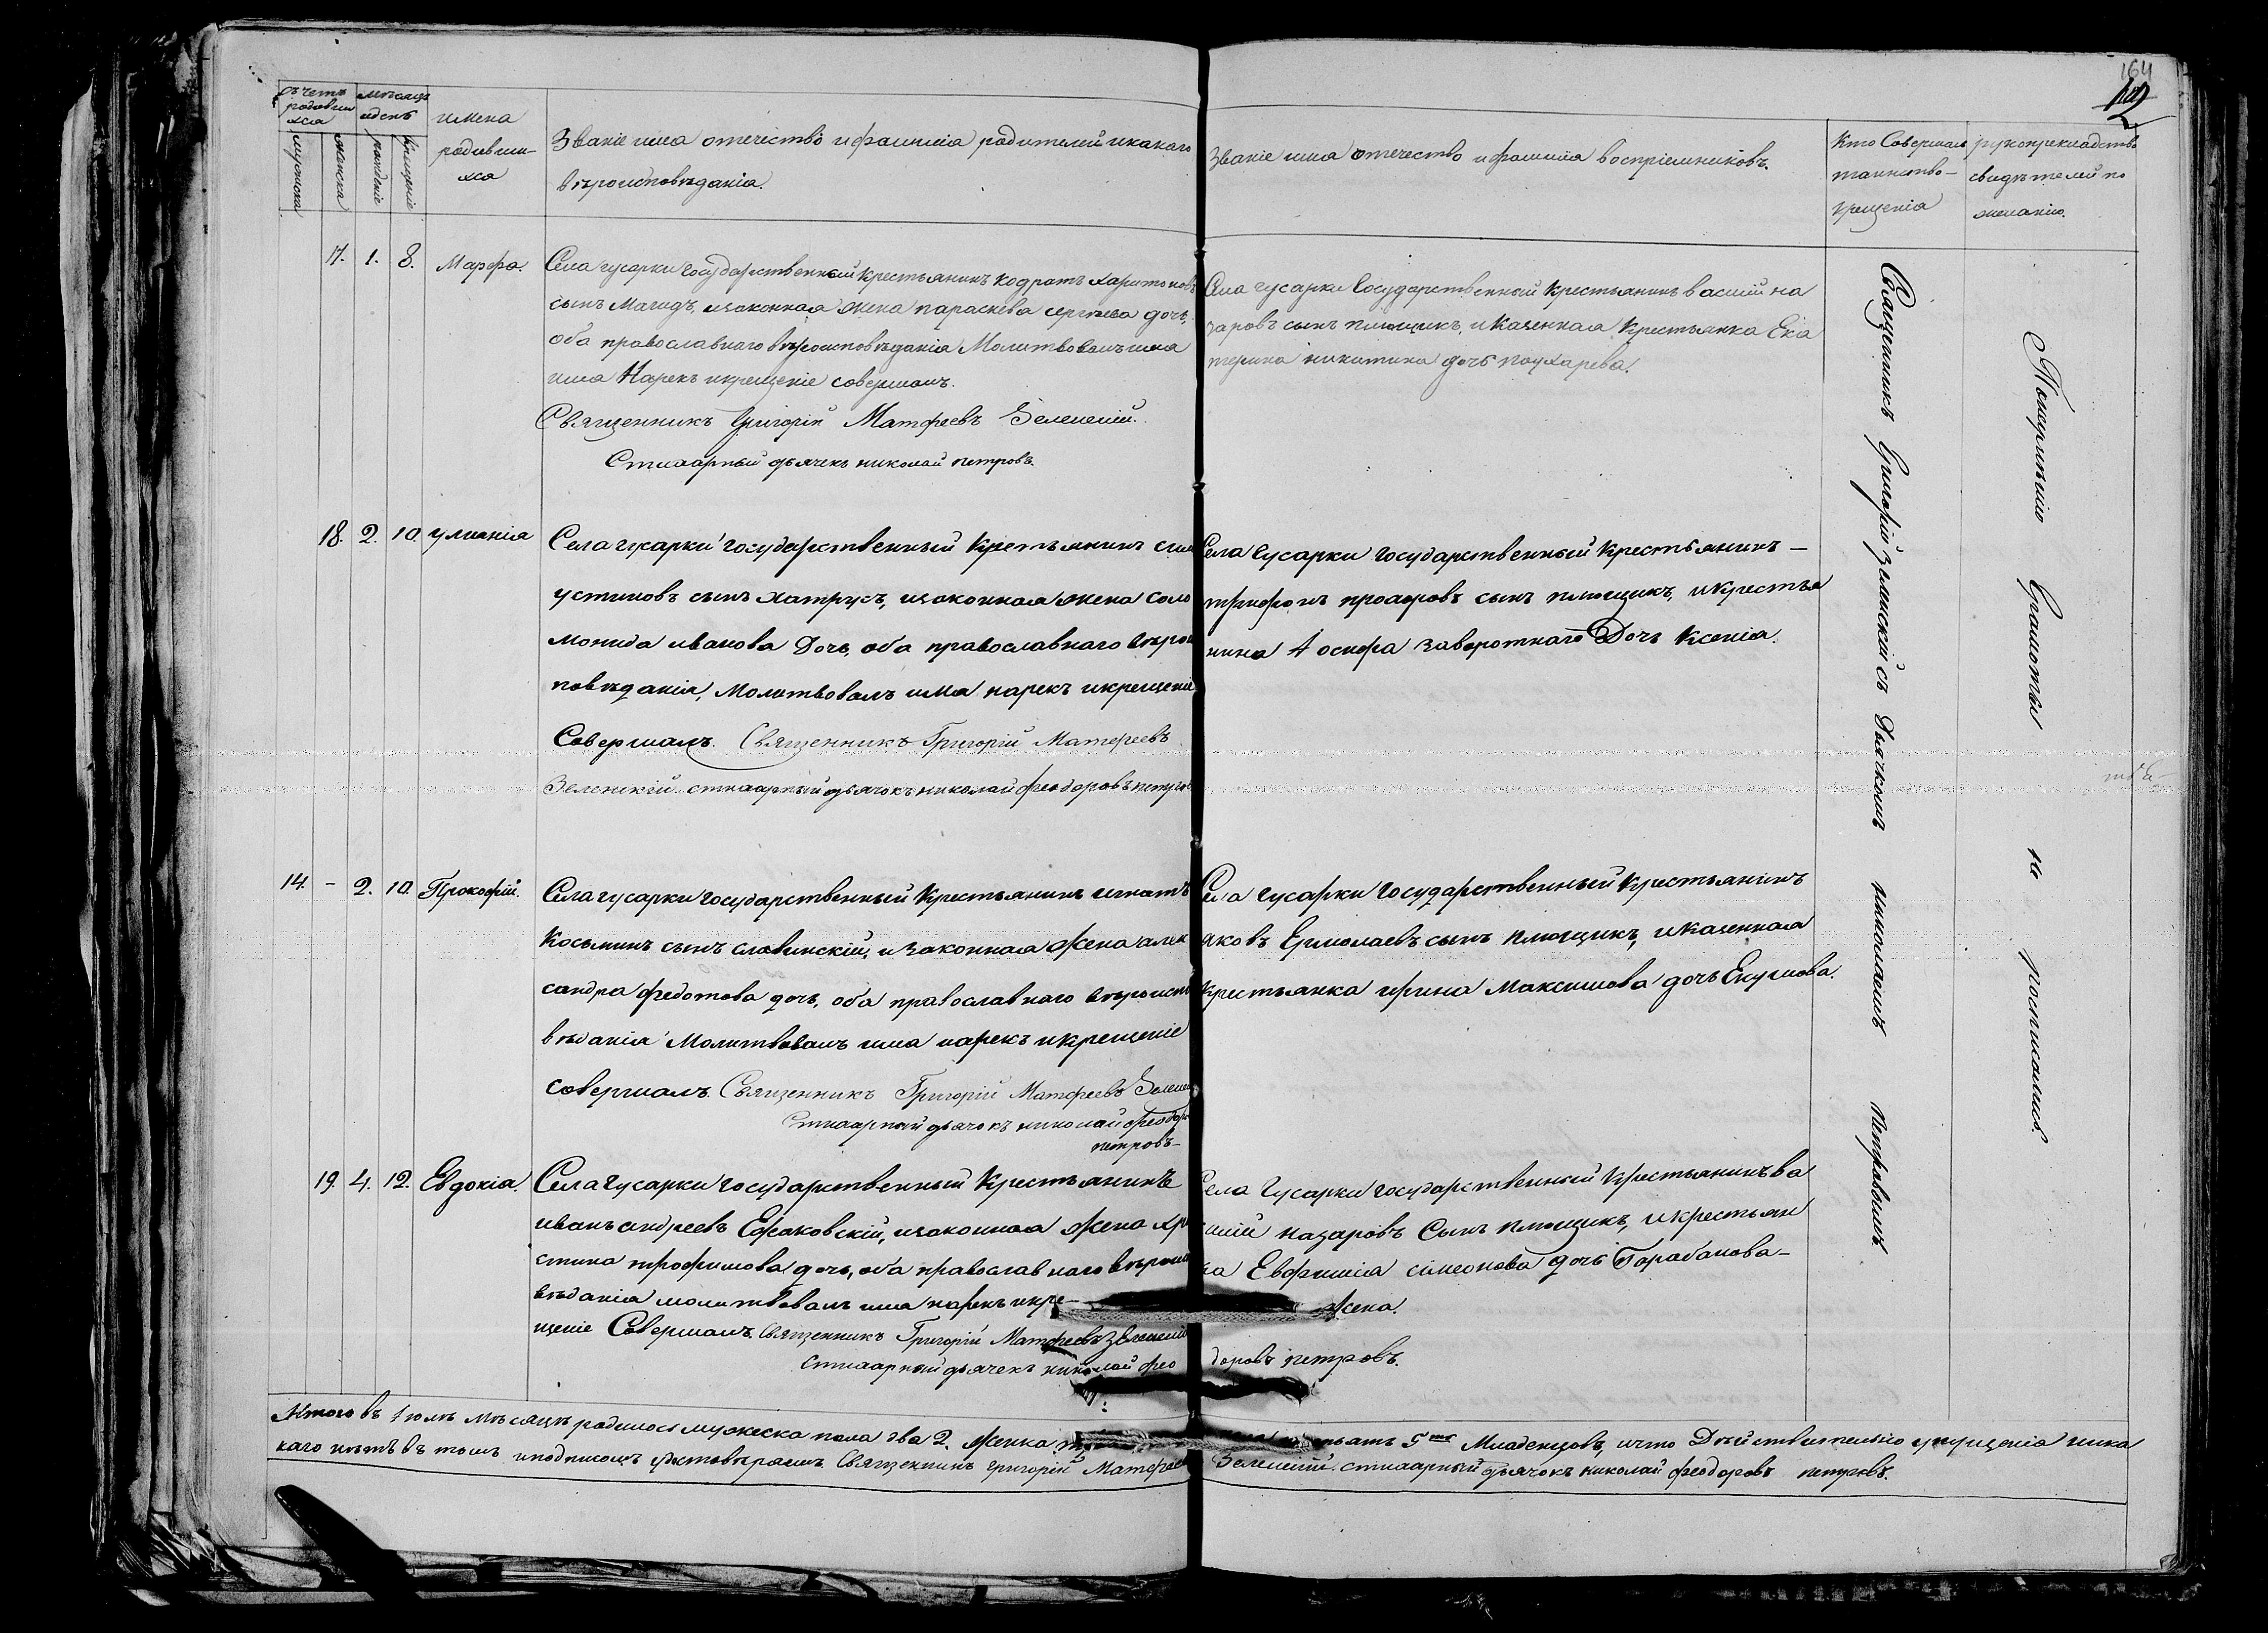 164
счетъ родившихся
мѣсяцъ и день
имена родившихся
мужеска
женска
рожденіе
крещеніе
Званіе имя отечество и фамилія родителей и какаго
вѣроисповѣданія.
Званіе имя отечество и фамилія воспріемниковъ.
Кто Совершалъ
таинство
крещенія
рукоприкладство
свидѣтелей по
желанію.
17. 1. 8. Марфа.
Села гусарки государственный крестьянинъ кодратъ харитоновъ
сынъ Магидъ, изаконная жена параскева сергѣева дочь,
оба православнаго вѣроисповѣданія Молитвовалъ имя
имя Нарекъ икрещеніе совершалъ.
Священникъ Григорій Матфеевъ Зеленскій.
Стихарный дьячекъ николай петровъ.
Села гусарки Государственный крестьянинъ василій на
заровъ сынъ плющикъ, и казенная Крестьянка Ека
терина никитина дочь
18. 2. 10. улианія
Села гусарки государственный крестьянинъ
устиновъ сынъ хатрусъ, изаконная жена соло
монида иванова Дочь, оба православнаго вѣрои
повѣданія, Молитвовалъ имя нарекъ икрещеніе
Совершалъ. Священникъ Григорій Матфеевъ
Зеленскій. стихарный дьячокъ николай феодоровъ петровъ
Села Гусарки государственный крестьянинъ —
трифонъ сынъ плющикъ, икрестья
нина Іосифа заворотнаго Дочь Ксенія.
14. – 2. 10. Прокофій.
Села гусарки государственный крестьянинъ игнатъ
Косминъ сынъ славинскій, и законная жена алек
сандра федотова дочь, оба православнаго вѣроиспо
вѣданія Молитвовалъ имя нарекъ икрещеніе
совершалъ. Священникъ Григорій Матфеевъ Зелен
Стихарный дьячокъ николай феодор
петровъ–
Села гусарки Государственный крестьянинъ
яковъ Ермолаевъ сынъ плющикъ, иказенная
Крестьянка ирина Максимова дочь
19. 4. 12. Евдокія.
Села Гусарки государственный Крестьянинъ
иванъ андреевъ изаконная жена хри
стина трофимова дочь, оба православнаго вѣроис
вѣданія молитвовалъ имя нарекъ икре–
щеніе Совершалъ. Священникъ Григорій Матфеевъ Зеленскій
Стихарный дьячекъ николай фео доровъ петровъ.
Села Гусарки государственный крестьянинъ ва
силій назаровъ Сынъ плющикъ, икрестьян
ка Евфимія симеонова дочь Барабанова–
жена.
Священникъ Григорій Зеленскій съ Дьячкомъ николаемъ Петровымъ
Понеумѣнію Грамоты не росписались.
Итого въ Іюлѣ Мѣсяцѣ родилось мужеска пола два 2. женка пять 5ть Младенцовъ, ичто Дѣйствительно упущенія ника
каго нѣтъ въ томъ иподписомъ удостовѣряемъ. Священникъ григорій Матфеевъ Зеленскій. стихарный дьячокъ николай феодоровъ петровъ.